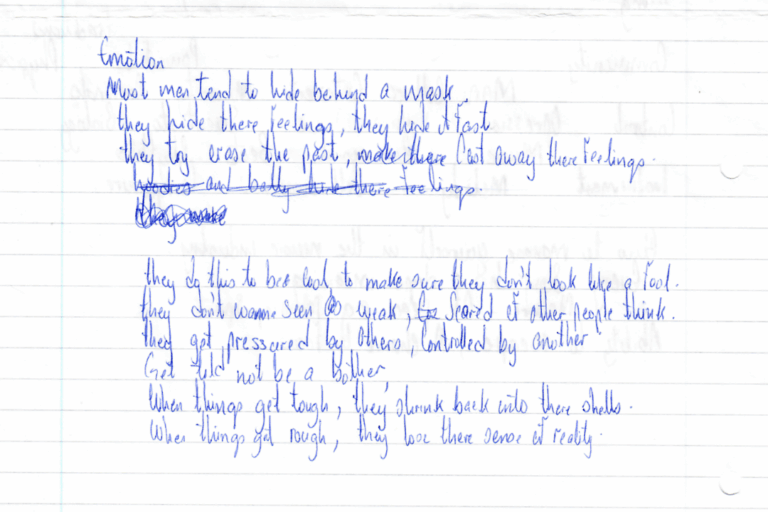 Emotion
Most men tend to hide behind a mask
they hide there feelings, they hide it fast
they try erase the past, Cast away there feelings.
hoodies and baby hide there feelings.
they do this to be cool, to make sure they don't look like a fool.
they don't wanna seen as weak, Scared of other people think.
they get pressured by others, Controlled by another
Get told not be a bother,
When things get tough, they shrink back into there shells.
When things get rough, they lose there sense of reality.